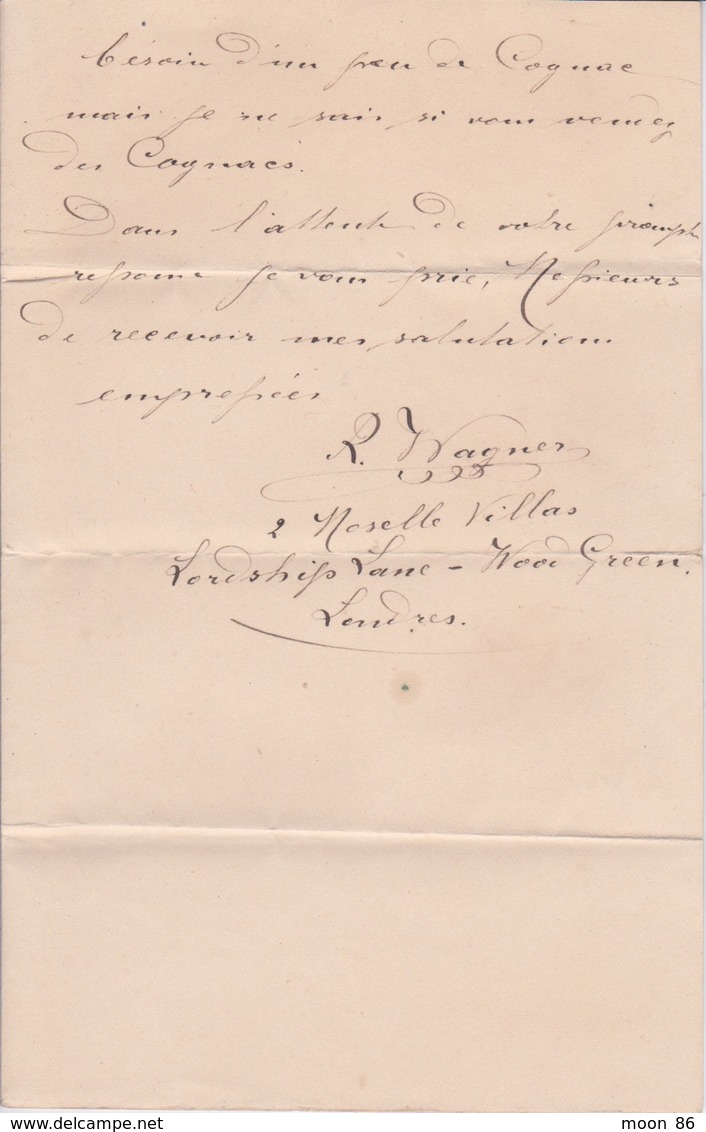 besoin d'un peu de Cognac
mais je ne sais si vous vendez
des Cognacs.
Dans l'attente de votre prompte
reponse je vous prie, Messieurs
de recevoir mes salutations
empressées
R. Wagner
2 Moselle Villas
Lordship Lane - Wood Green.
Londres.
moon 86